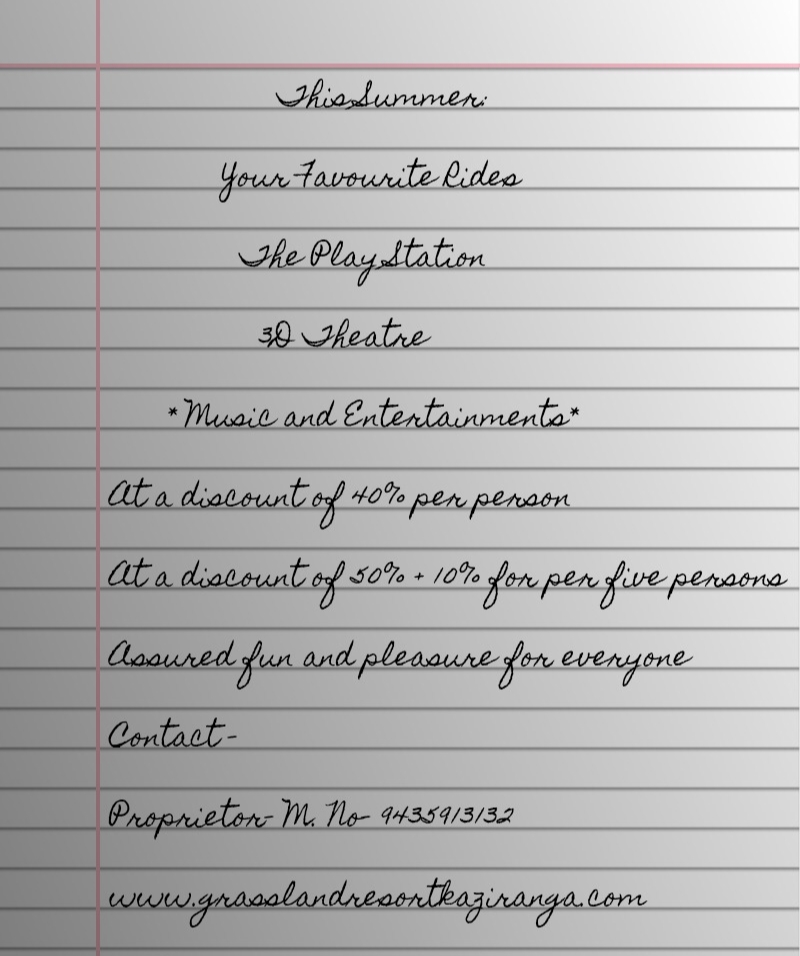 This Summer:
Your Favourite Rides
The Play Station
3D Theatre
*Music and Entertainments*
At a discount of 40% per person
At a discount of 50% + 10% for per five persons
Assured fun and pleasure for everyone
Contact-
Proprietor- M. No- 9435913132
www.grasslandresortkaziranga.com